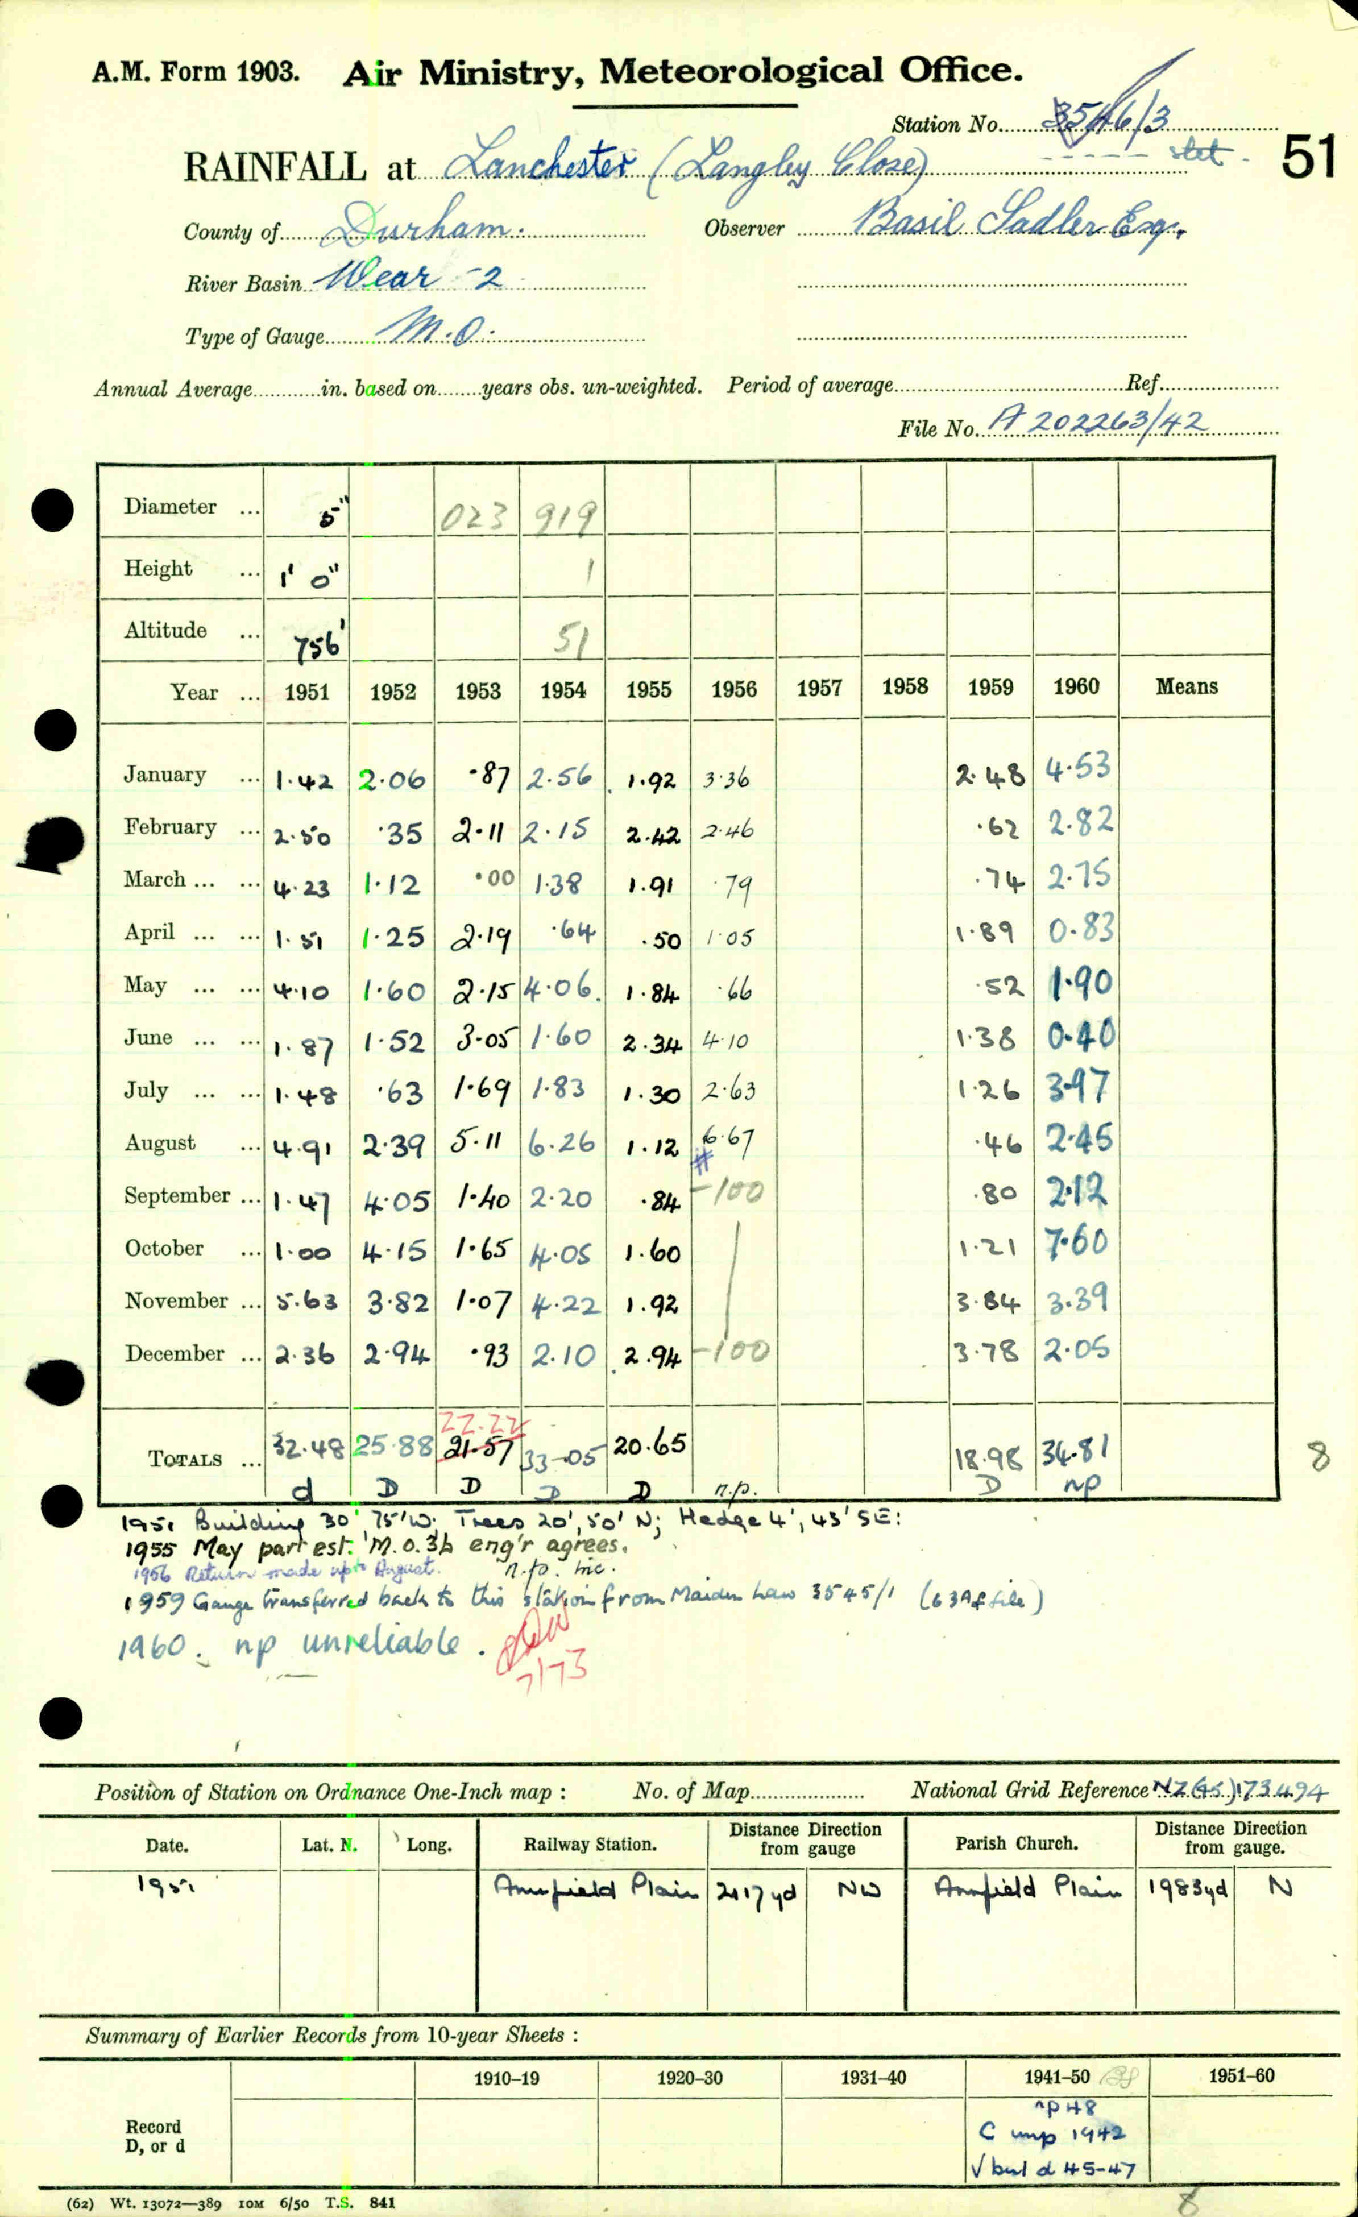 A.M. Form 1903. Air Ministry, Meteorological Office.
Station No. 3546/3
stet.
51
RAINFALL at Lanchester (Langley Close)
County of Durham. Observer Basil Sadler Esq.
River Basin Wear - 2
Type of Gauge M.O.
Annual Average in. based on years obs. un-weighted. Period of average Ref.
File No. A 202263/42
Diameter ... 5" 023 919
Height ... 1' 0" 1
Altitude ... 756' 51
Year ... 1951 1952 1953 1954 1955 1956 1957 1958 1959 1960 Means
January ... 1.42 2.06 .87 2.56 1.92 3.36 2.48 4.53
February ... 2.50 .35 2.11 2.15 2.42 2.46 .62 2.82
March ... ... 4.23 1.12 .00 1.38 1.91 .79 .74 2.75
April ... ... 1.51 1.25 2.19 .64 .50 1.05 1.89 0.83
May ... ... 4.10 1.60 2.15 4.06 1.84 .66 .52 1.90
June ... ... 1.87 1.52 3.05 1.60 2.34 4.10 1.38 0.40
July ... ... 1.48 .63 1.69 1.83 1.30 2.63 1.26 3.97
August ... 4.91 2.39 5.11 6.26 1.12 6.67 .46 2.45
#
September ... 1.47 4.05 1.40 2.20 .84 -100 .80 2.12
October ... 1.00 4.15 1.65 4.05 1.60 1.21 7.60
November ... 5.63 3.82 1.07 4.22 1.92 3.84 3.39
December ... 2.36 2.94 .93 2.10 2.94 -100 3.78 2.05
22.22
TOTALS ... 32.48 25.88 21.57 33.05 20.65 18.98 34.81 8
d D D D D n.p. D np
1951 Building 30' 75'W. Trees 20', 50' N; Hedge 4', 43' SE:
1955 May part est. M.O.3b eng'r agrees.
1956 Return made up to August. n.p. inc.
1959 Gauge transferred back to this station from Maiden Law 3545/1 (63A f file)
1960. np unreliable.
7/73
Position of Station on Ordnance One-Inch map : No. of Map National Grid Reference NZ(45)173494
Date. Lat. N. Long. Railway Station. Distance from gauge Direction Parish Church. Distance from gauge. Direction
1951 Annfield Plain 2417yd NW Annfield Plain 1983yd N
Summary of Earlier Records from 10-year Sheets :
1910–19 1920–30 1931–40 1941–50 1951–60
Record
D, or d
np 48
C unp 1942
√ but d 45-47
(62) Wt. 13072—389 10M 6/50 T.S. 841
8